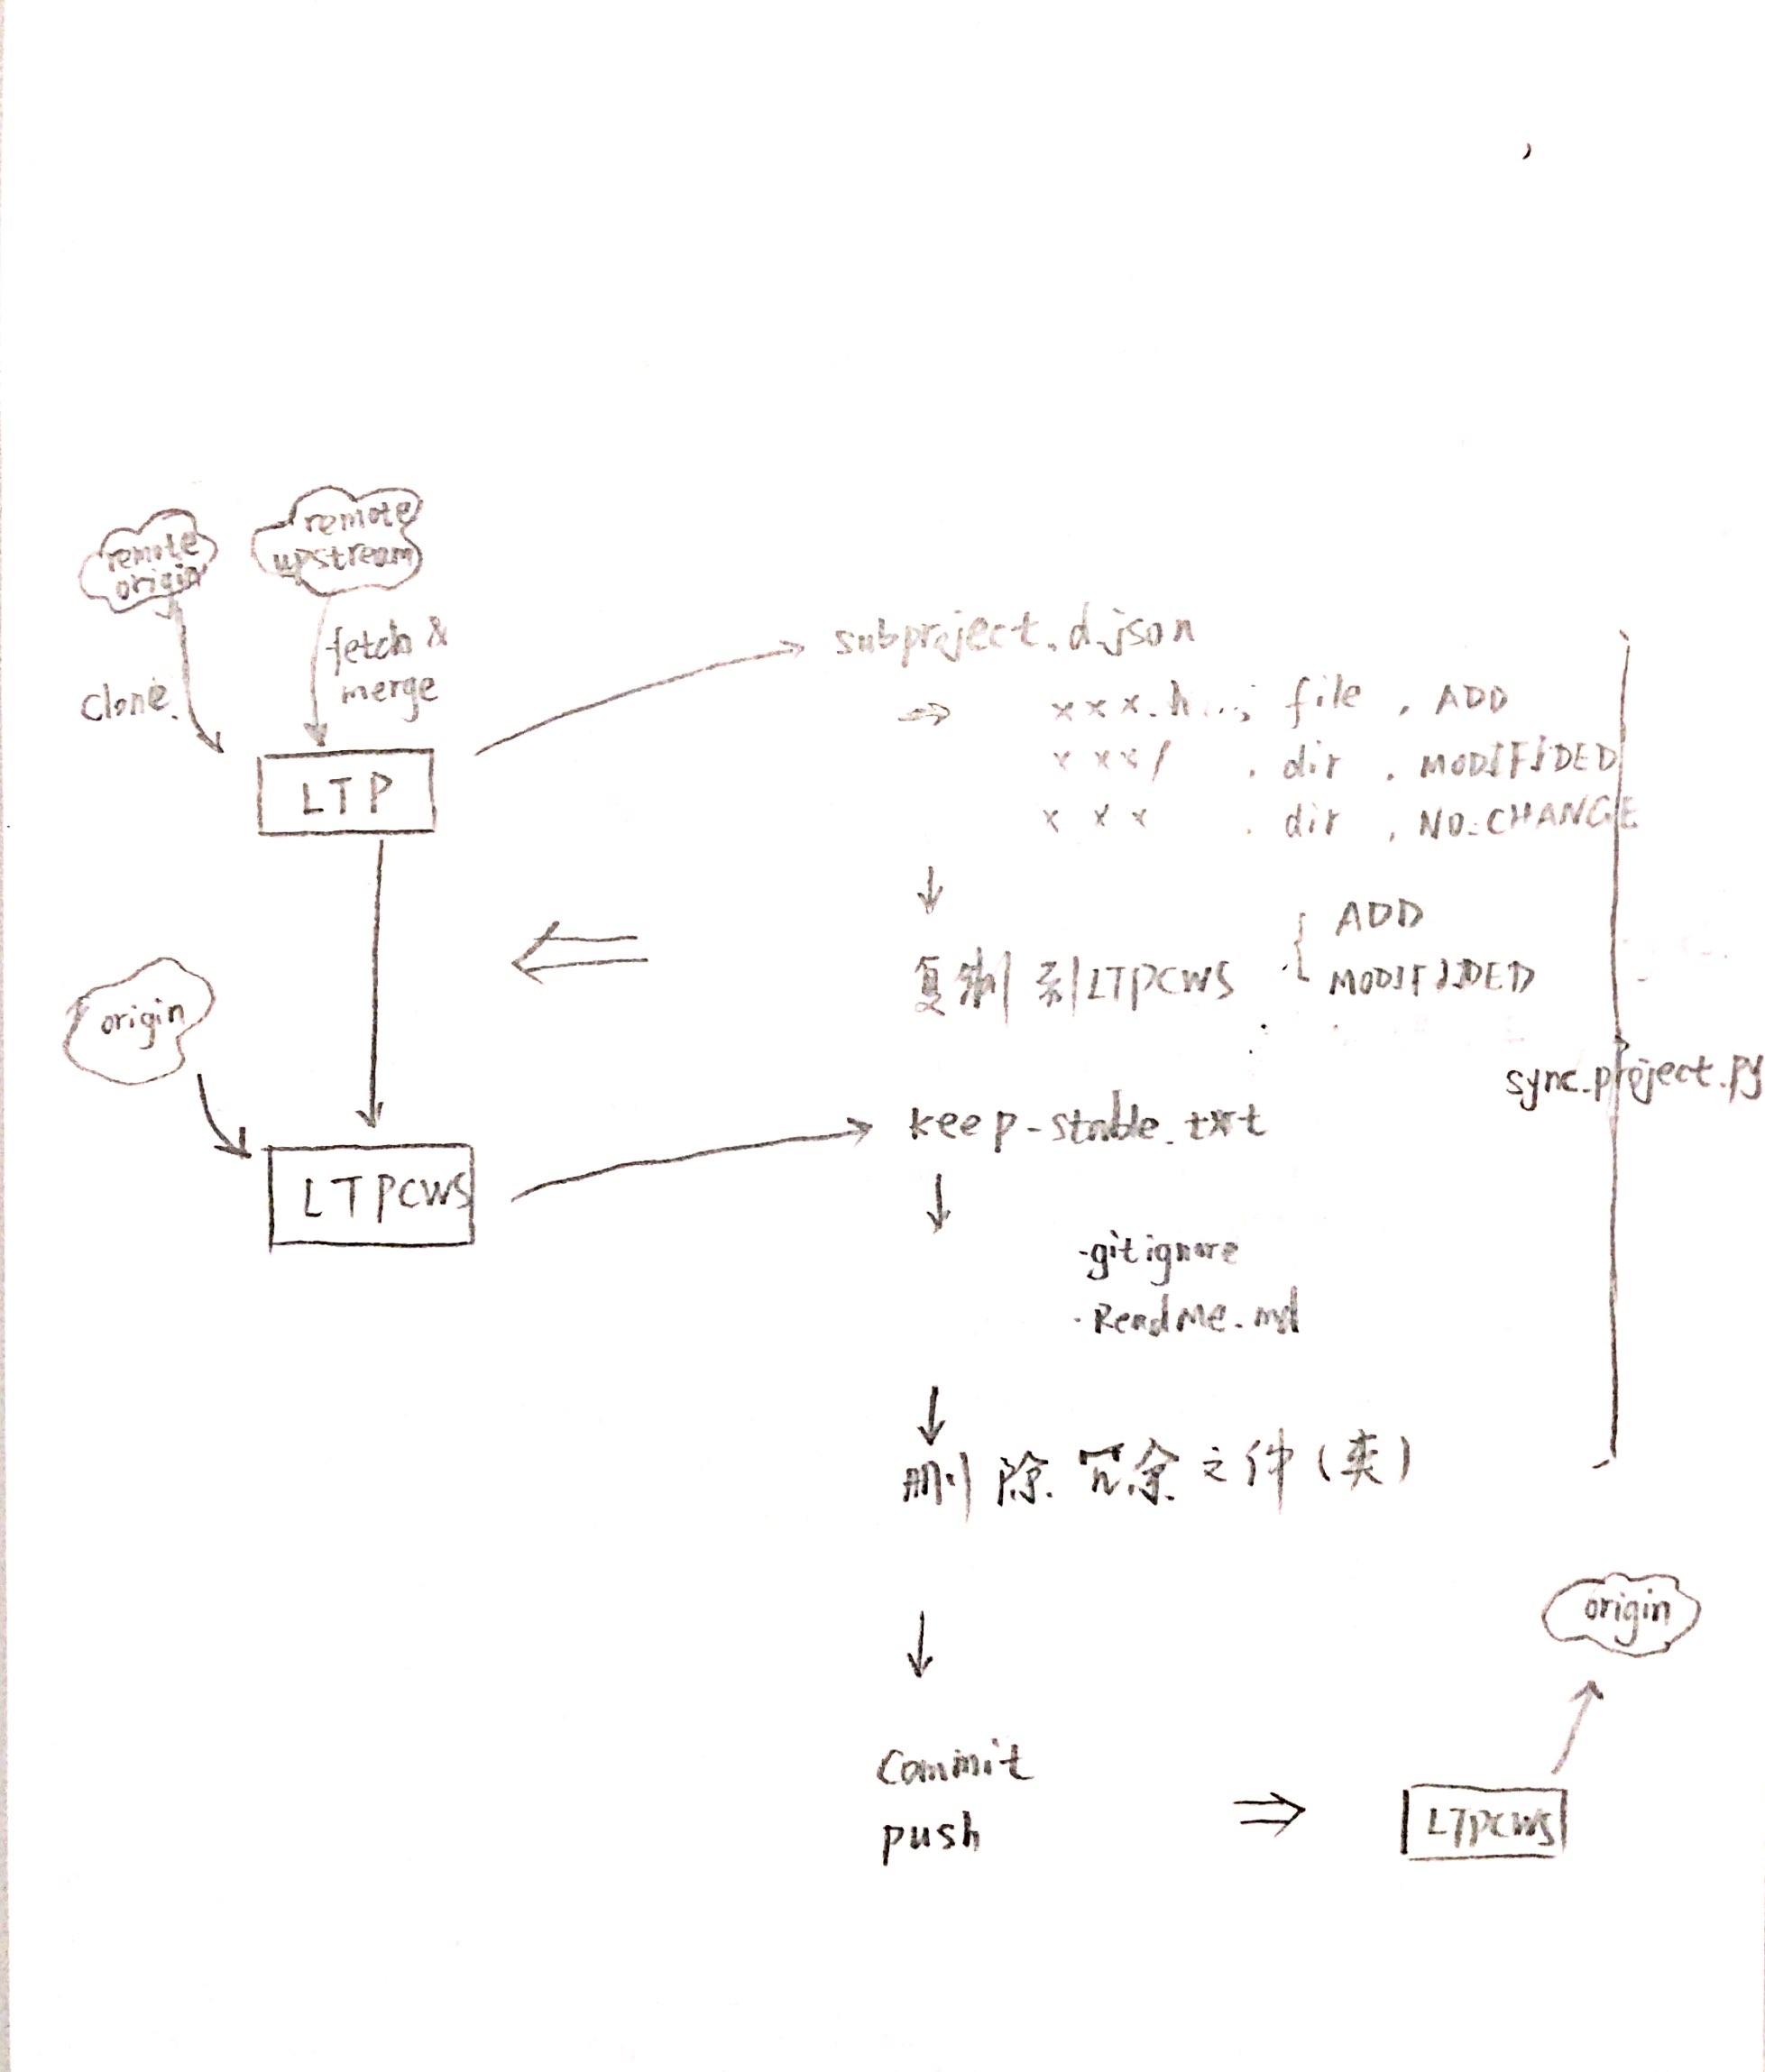 remote
origin
remote
upstream
clone.
fetch &
merge
LTP
origin
LTPCWS
subproject.d.json
xxx.h file , ADD
xxx/ , dir , MODIFIDED
xxx , dir , NO_CHANGE
复制到LTPCWS
ADD
MODIFIDED
sync_project.py
keep-stable.txt
.gitignore
.ReadMe.md
删除冗余文件(夹)
commit
push
LTPCWS
origin